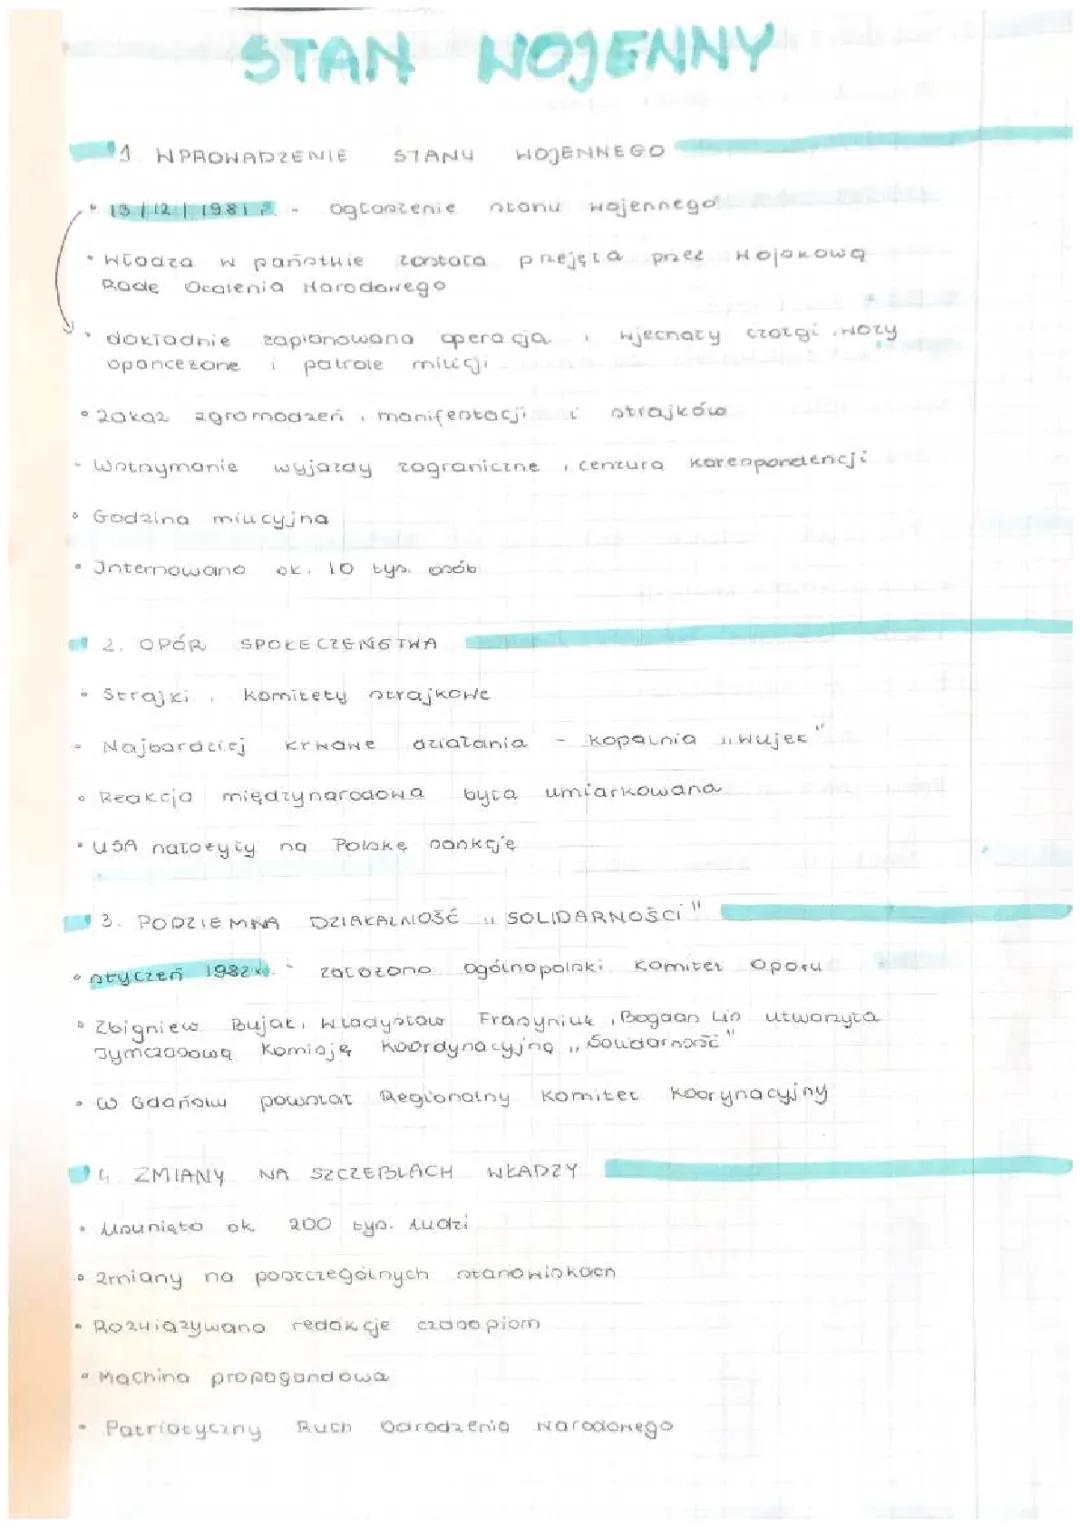 STAN WOJENNY
1. WPROWADZENIE STANU WOJENNEGO
• 13/12/1981 r. - ogłoszenie stanu wojennego
• Władza w państwie została przejęta przez Wojskową
Radę Ocalenia Narodowego
• dokładnie zaplanowana operacja, wjechały czołgi, wozy
opancezone i patrole milicji
• Zakaz zgromadzeń, manifestacji i strajków
- Wstrzymanie wyjazdy zagraniczne, cenzura korespondencji
• Godzina milicyjna
• Internowano ok. 10 tys. osób
2. OPÓR SPOŁECZEŃSTWA
• Strajki, komitety strajkowe
• Najbardziej krwawe działania - kopalnia „Wujek"
• Reakcja międzynarodowa była umiarkowana
• USA nałożyły na Polskę sankcje
3. PODZIEMNA DZIAŁALNOŚĆ „SOLIDARNOŚCI"
• styczeń 1982 r. - założono ogólnopolski Komitet Oporu
• Zbigniew Bujak, Władysław Frasyniuk, Bogdan Lis utworzyła
Tymczasową Komisję Koordynacyjną „Solidarność"
• W Gdańsku powstał Regionalny Komitet Koorynacyjny
4. ZMIANY NA SZCZEBLACH WŁADZY
• Usunięto ok 200 tys. ludzi
• Zmiany na poszczególnych stanowiskach
• Rozwiązywano redakcje czasopism
• Machina propagandowa
• Patriotyczny Ruch Odrodzenia Narodowego